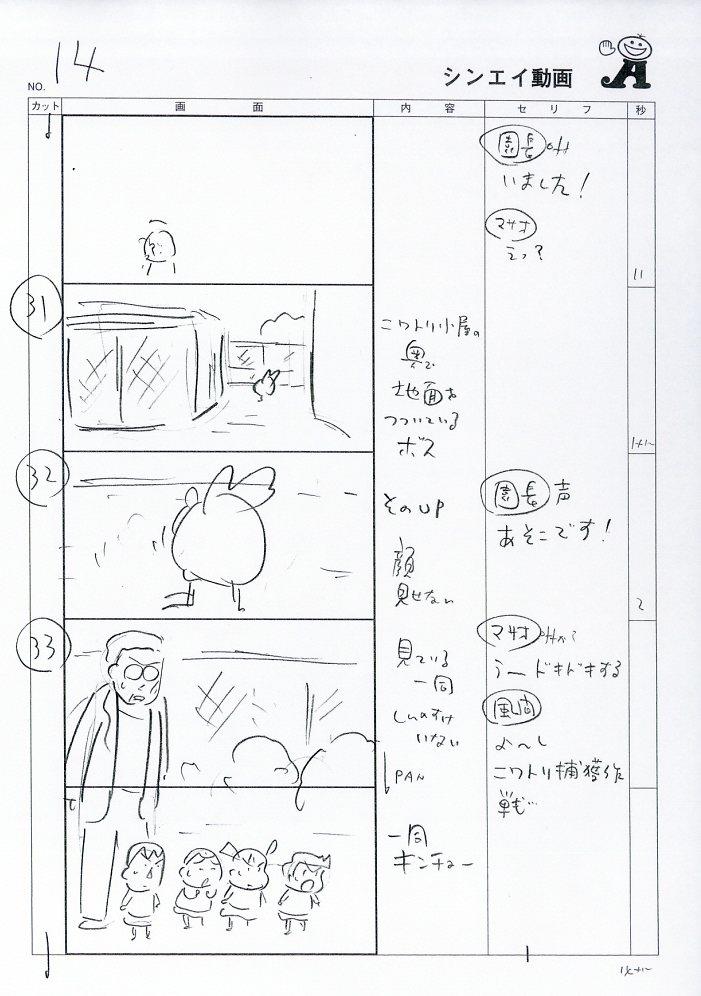 14
シンエイ動画
NO.
カット 画面 内容 セリフ 秒
園長 off
いました!
マサオ
えっ?
11
31
ニワトリ小屋の
奥で
地面を
つついている
ボス
32
そのUP
顔
見せない
園長 声
あそこです!
2
33
見ている
一同
しんのすけ
いない
PAN
一同
キンチョー
マサオ
うードキドキする
風間
よ〜し
ニワトリ捕獲作
戦だ